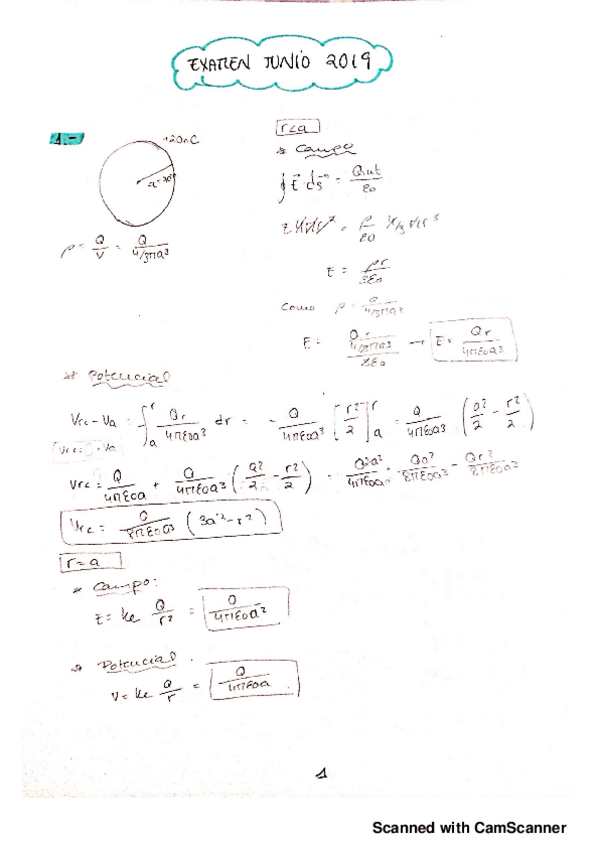 EXAMEN JUNIO 2019
1.-
+20nC
ρ = Q/V = Q/(4/3πa³)
r<a
* Campo
∮ E⃗ ds⃗ = Qint/ε0
E 4πr² = ρ/ε0 4/3 πr³
E = ρr/3ε0
Como ρ = Q/(4/3πa³)
E = (Qr/(4/3πa³))/3ε0 → E = Qr/4πε0a³
* Potencial
Vrc - Va = ∫ₐʳ Qr/4πε0a³ dr = - Q/4πε0a³ [r²/2]ₐʳ = Q/4πε0a³ (a²/2 - r²/2)
Vrc = Q/4πε0a + Q/4πε0a³ (a²/2 - r²/2) = Qa²/4πε0a³ + Qa²/8πε0a³ - Qr²/8πε0a³
Vrc = Q/8πε0a³ (3a² - r²)
r=a
* Campo:
E = ke Q/r² = Q/4πε0a²
* Potencial.
V = ke Q/r = Q/4πε0a
1
Scanned with CamScanner